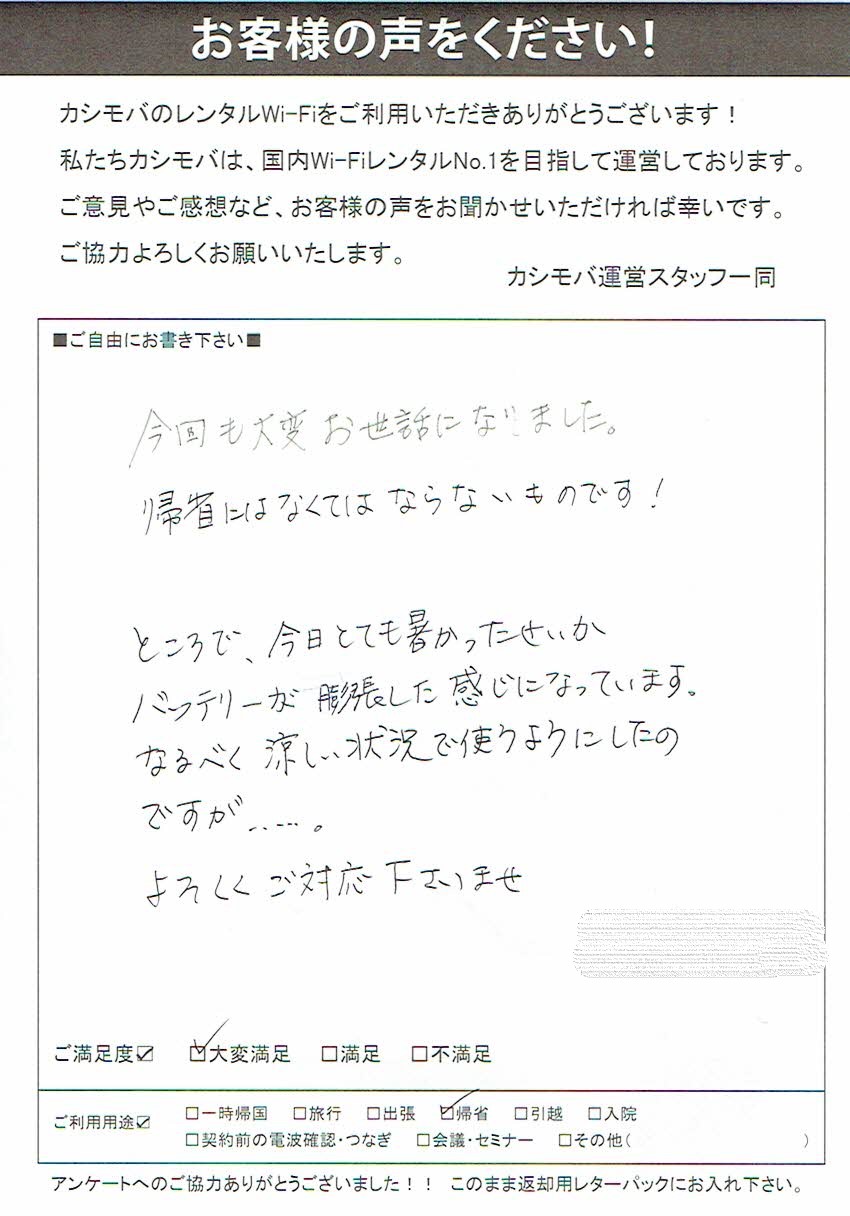 お客様の声をください!
カシモバのレンタルWi-Fiをご利用いただきありがとうございます!
私たちカシモバは、国内Wi-FiレンタルNo.1を目指して運営しております。
ご意見やご感想など、お客様の声をお聞かせいただければ幸いです。
ご協力よろしくお願いいたします。
カシモバ運営スタッフ一同
■ご自由にお書き下さい■
今回も大変お世話になりました。
帰省にはなくてはならないものです!
ところで、今日とても暑かったせいか
バッテリーが膨張した感じになっています。
なるべく涼しい状況で使うようにしたの
ですが……。
よろしくご対応下さいませ
ご満足度☑ ☑大変満足 □満足 □不満足
ご利用用途☑ □一時帰国 □旅行 □出張 ☑帰省 □引越 □入院
□契約前の電波確認・つなぎ □会議・セミナー □その他( )
アンケートへのご協力ありがとうございました!! このまま返却用レターパックにお入れ下さい。